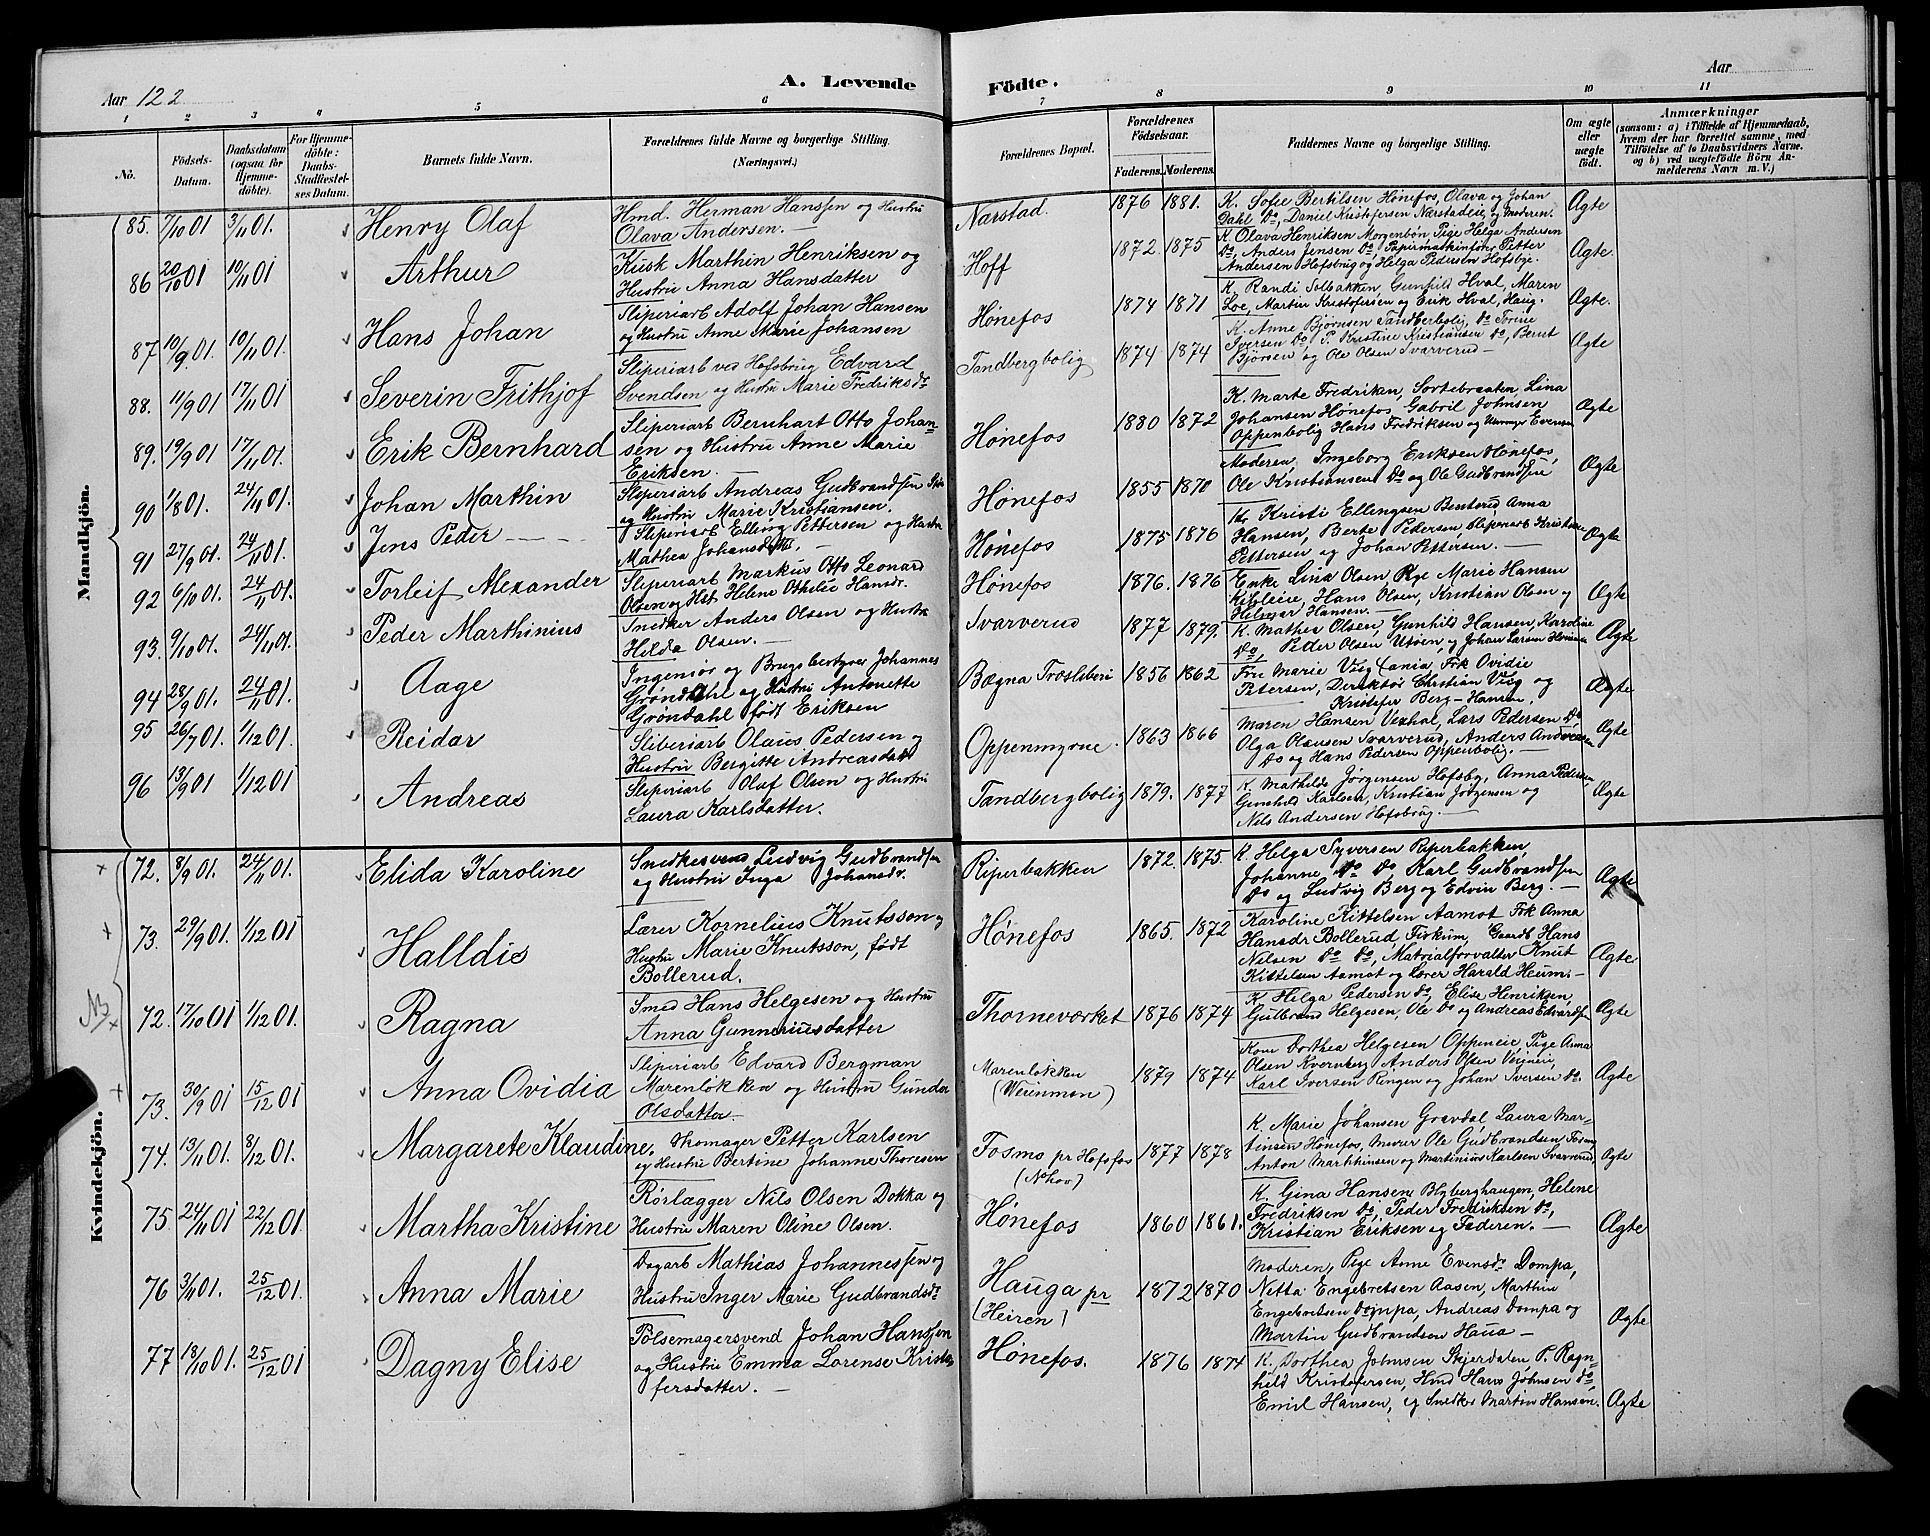 A. Levende Födte.
Aar 122
Aar
1 2 3 4 5 6 7 8 9 10 11
No.
Födsels-Datum.
Daabsdatum (ogsaa for Hjemmedöbte).
For Hjemmedöbte: Daabs-Stadfæstelses Datum.
Barnets fulde Navn.
Forældrenes fulde Navne og borgerlige Stilling. (Næringsvei.)
Forældrenes Bopæl.
Forældrenes Födselsaar.
Faderens. Moderens.
Faddernes Navne og borgerlige Stilling.
Om ægte eller uægte födt.
Anmærkninger
(saasom: a) i Tilfælde af Hjemmedaab, hvem der har forrettet samme, med Tilföielse af to Daabsvidners Navne, og b) ved uægtefödte Börn Anmelderens Navn m. V.)
Mandkjön.
85. 7/10 01 3/11 01. Henry Olaf
Hmd. Herman Hanssen og Hustru
Olava Andersen. —
Narstad. 1876 1881.
K. Sofie Bertilsen Hønefos, Olava og Johan
Dahl Do, Daniel Kristofersen Nærstadeie, og Moderen.
Ægte
86 20/10 01 10/11 01 Arthur
Kusk Marthin Henriksen og
Hustru Anna Hansdatter
Hoff 1872. 1875
K Olava Henriksen Morgenbøn Pige Helga Andersen
Do, Anders Jensen Do, Papirmaskinfører Petter
Andersen Hofsbrug og Helga Pedersen Hofsbye.
Ægte.
87 10/9 01. 10/11 01. Hans Johan
Sliperiarb Adolf Johan Hansen
og Hustru Anne Marie Johansen
Hønefos 1874 1871
K. Randi Solbakken, Gunhild Hval, Maren
Loe, Martin Kristofersen og Erik Hval, Haug.
Ægte.
88. 11/9 01 17/11 01 Severin Frithjof
Sliperiarb ved Hofsbrug Edvard
Svendsen og Hustru Marie Fredriksdr
Tandbergbolig 1874 1874
K. Anne Bjørnsen Tandberbolig, Do Torine
Iversen Do, P. Kristine Kristiansen Do, Bernt
Bjørsen og Ole Olsen Svarverud —
Ægte
89. 19/9 01 17/11 01. Erik Bernhard
Sliperiarb Bernhart Otto Johan-
sen og Hustru Anne Marie
Eriksen. —
Hønefos 1880 1872
K. Marte Fredriken, Sortebraaten, Lina
Johansen Hønefos Gabril Johnsen
Oppenbolig Hans Fredriksen og Evensen
Ægte
90 1/8 01. 24/11 01. Johan Marthin
Sliperiarb Andreas Gudbrandsen
og Hustru Marie Kristiansen.
Hønefos 1855 1870
Moderen, Ingeborg Eriksen Hønefos,
Ole Kristiansen Do og Ole Gudbrandsen
Ægte
91 27/9 01. 24/11 01. Jens Peder
Sliperiarb Elling Pettersen og Hustru
Mathea Johansdatter, —
Hønefos 1875 1876
Kr Kristi Ellingsen Bentsrud Anna
Hansen, Berte Pedersen, Sliperiarb Kristian
Pettersen og Johan Pettersen. —
Ægte
92 6/10 01. 24/11 01. Torleif Alexander
Sliperiarb Markus Otto Leonard
Olsen og Hst Helene Othelie Hansdr.
Hønefos 1876. 1876
Enke Lina Olsen, Pige Marie Hansen
Hans Olsen, Kristian Olsen og
Helmer Hansen. —
Ægte
93. 9/10 01. 24/11 01. Peder Marthinius
Snedker Anders Olsen og Hustru
Hilda Olsen. —
Svarverud 1877 1879.
K. Mathea Olsen, Gunhild Hansen, Karoline
Do, Peder Olsen og Johan Larsen
Ægte
94 28/9 01. 24/11 01. Aage
Ingeniør og Brugsbestyrer Johannes
Grøndahl og Hustru Antonette
Grøndahl født Eriksen
Bægna Træsliberi 1856 1862
Fru Marie Vig Xania, Frk Ovidie
Petersen, Direktør Christian Vig og
Kristofer Berg-Hansen,
Ægte
95 26/7 01. 1/12 01. Reidar
Sliberiarb Olaus Pedersen og
Hustru Bergitte Andreasdatt
Oppenmyrne. 1863 1866
Maren Hansen Vexhal, Lars Pedersen Do
Olga Olausen Svarverud, Anders Andersen
Do og Hans Pedersen Oppenbolig. —
Ægte
96 13/9 01 1/12 01 Andreas
Sliperiarb Olaf Olsen og Hustru
Laura Karlsdatter.
Tandbergbolig 1879. 1877
K. Mathilde Jørgensen Hofsby, Anna Pedersen,
Gunhild Karlsen, Kristian Jørgensen og
Nils Andersen Hofsbrug. —
Ægte
Kvindekjön.
NB
72. 8/9 01. 24/11 01. Elida Karoline
Snedkesvend Ludvig Gudbrandsen
og Hustru Inga Johansdr.
Riperbakken 1872. 1875.
K. Helga Syversen Riperbakken,
Johanne Do Do, Karl Gudbrandsen
Do og Ludvig Berg og Edvin Berg. —
Ægte
73. 29/9 01. 1/12 01 Halldis
Lærer Kornelius Knutsson og
Hustru Marie Knutsson, født
Bollerud.
Hønefos 1865. 1872
Karoline Kittelsen Aamot Frk Anna
Hansdr Bollerud, Fiskum, Gaardb Hans
Nilsen Do Do, Matrialforvalter Knut
Kittelsen Aamot og Lærer Harald Heum —
Ægte
72. 17/10 01 1/12 01. Ragna
Smed Hans Helgesen og Hustru
Anna Gunneriusdatter
Thorneværket 1876 1874
K. Helga Pedersen Do, Elise Henriksen,
Gulbrand Helgesen, Ole Do og Andreas Edvardsen
Ægte
73. 30/9 01 15/12 01 Anna Ovidia
Sliperiarb Edvard Bergman
Marenløkka og Hustru Gunda
Olsdatter —
Marenløkken
(Veienmon) 1879 1874
Kom Dorthea Helgesen Oppeneie, Pige Anna
Olsen Kvernberg Anders Olsen Veieneie,
Karl Iversen Ringen og Johan Iversen Do.
Ægte
74. 13/11 01. 8/12 01. Margarete Klaudine.
Skomager Petter Karlsen
og Hustru Bertine Johanne Thoresen
Fosmo pr Hofsfos
(Nhov) 1877 1878
K. Marie Johansen Gravdal, Laura Mar-
tinsen Hønefos, Murer Ole Gudbrandsen Fosmo
Anton Marthinsen og Martinius Karlsen Svarverud.
Ægte
75 24/11 01 22/12 01. Martha Kristine
Rørlægger Nils Olsen Dokka og
Hustru Maren Oline Olsen.
Hønefos 1860 1861.
K. Gina Hansen Blyberghaugen, Helene
Fredriksen Do, Peder Fredriksen Do,
Kristian Eriksen og Faderen. —
Ægte
76 3/11 01. 25/12 01. Anna Marie
Dagarb Mathias Johannessen og
Hustru Inger Marie Gudbrandsdr
Hauga pr
(Heiren) 1872 1870
Moderen, Pige Anne Evensdr Dompa,
Netta Engebretsen Aasen, Marthin
Engebretsen Dompa, Andreas Dompa og
Martin Gudbrandsen Haua —
Ægte
77 18/10 01. 25/12 01 Dagny Elise
Pølsemagersvend Johan Hanssen
og Hustru Emma Lorense Kristo-
fersdatter. —
Hønefos. 1876 1874
K. Dorthea Johnsen Skjerdalen, P. Ragn-
hild Kristofersen, Hmd Hans Johnsen Do,
Emil Hansen, og Snedker Martin Hansen.
Ægte